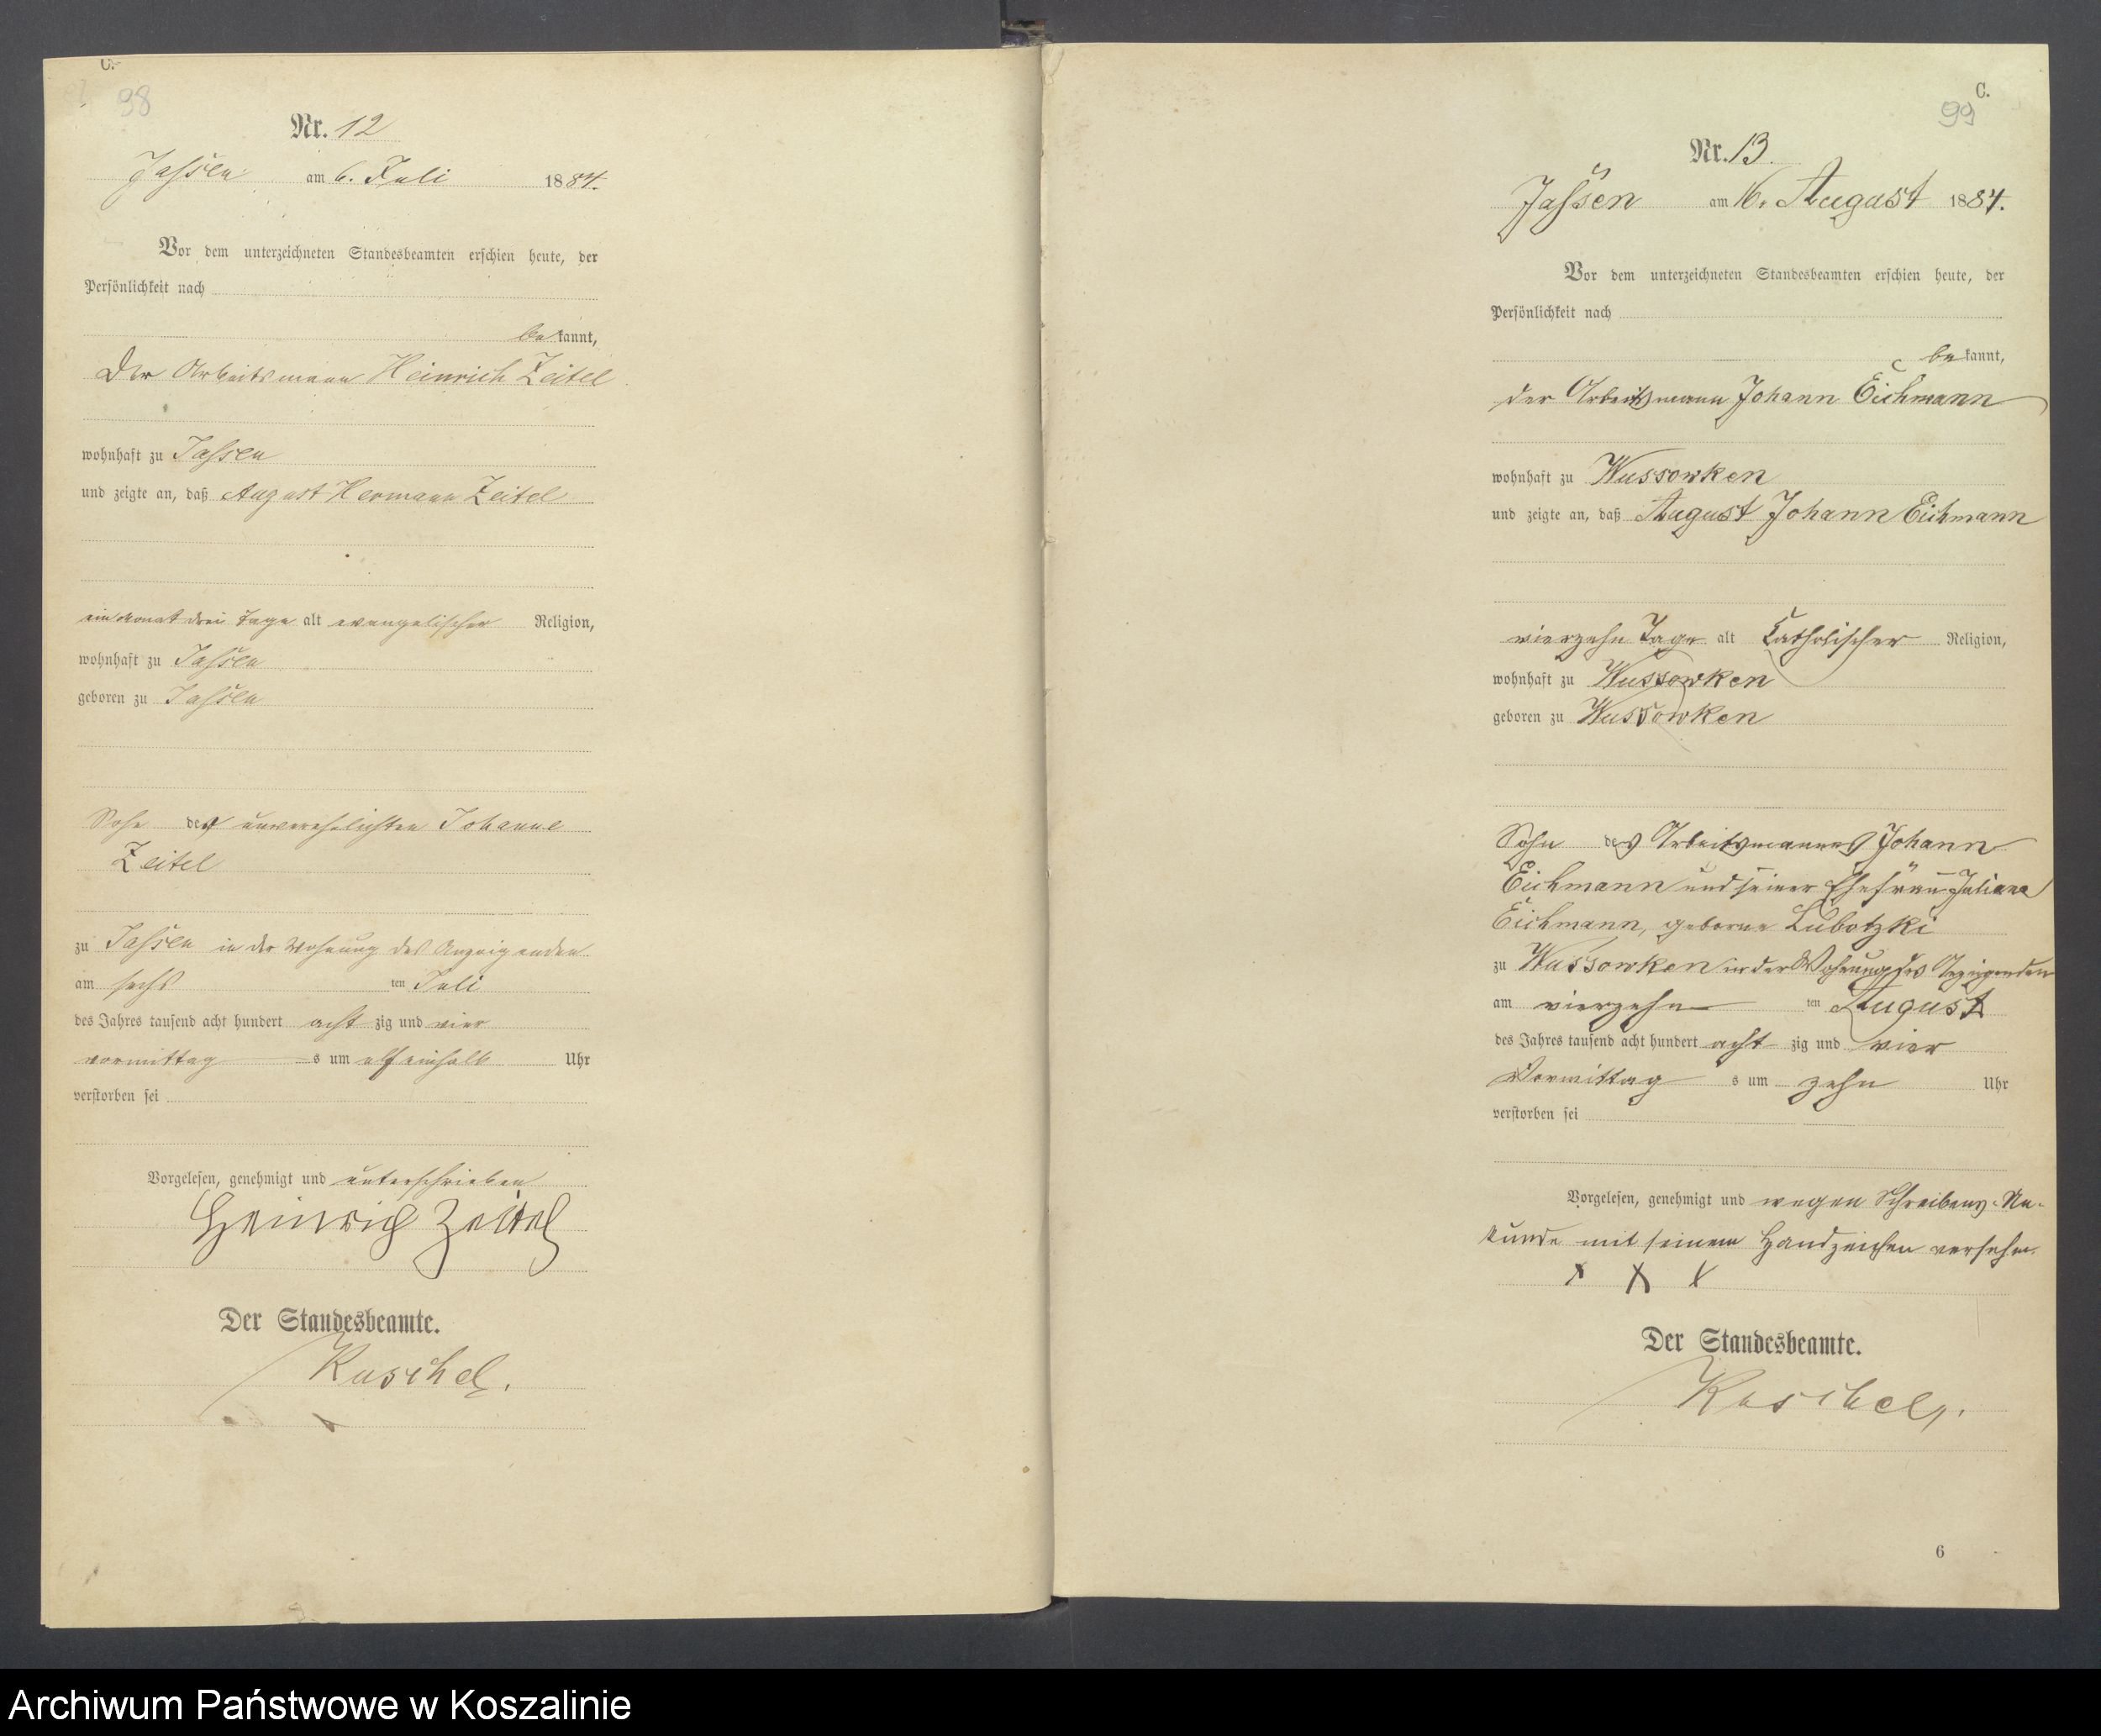 C.
98
Nr. 12
Jassen am 6. Juli 1884.
Vor dem unterzeichneten Standesbeamten erschien heute, der
Persönlichkeit nach
bekannt,
der Arbeitsmann Heinrich Zeitel
wohnhaft zu Jassen
und zeigte an, daß August Hermann Zeitel
ein Monat drei Tage alt evangelischer Religion,
wohnhaft zu Jassen
geboren zu Jassen
Sohn der unverehelichten Johanne
Zeitel
zu Jassen in der Wohnung des Anzeigenden
am sechs ten Juli
des Jahres tausend acht hundert acht zig und vier
vormittag s um elf einhalb Uhr
verstorben sei
Vorgelesen, genehmigt und unterschrieben
Heinrich Zeitel
Der Standesbeamte.
Kuschel.
C.
99
Nr. 13.
Jassen am 16. August 1884.
Vor dem unterzeichneten Standesbeamten erschien heute, der
Persönlichkeit nach
bekannt,
der Arbeitsmann Johann Eichmann
wohnhaft zu Wussowken
und zeigte an, daß August Johann Eichmann
vierzehn Tage alt Catholischer Religion,
wohnhaft zu Wussowken
geboren zu Wussowken
Sohn des Arbeitsmannes Johann
Eichmann und seiner Ehefrau Juliane
Eichmann, geborne Lubotzki
zu Wussowken in der Wohnung des Anzeigenden
am vierzehn ten August
des Jahres tausend acht hundert acht zig und vier
Vormittag s um zehn Uhr
verstorben sei
Vorgelesen, genehmigt und wegen Schreibens-Un-
kunde mit seinem Handzeichen versehen.
x x x
Der Standesbeamte.
Kuschel.
6
Archiwum Państwowe w Koszalinie